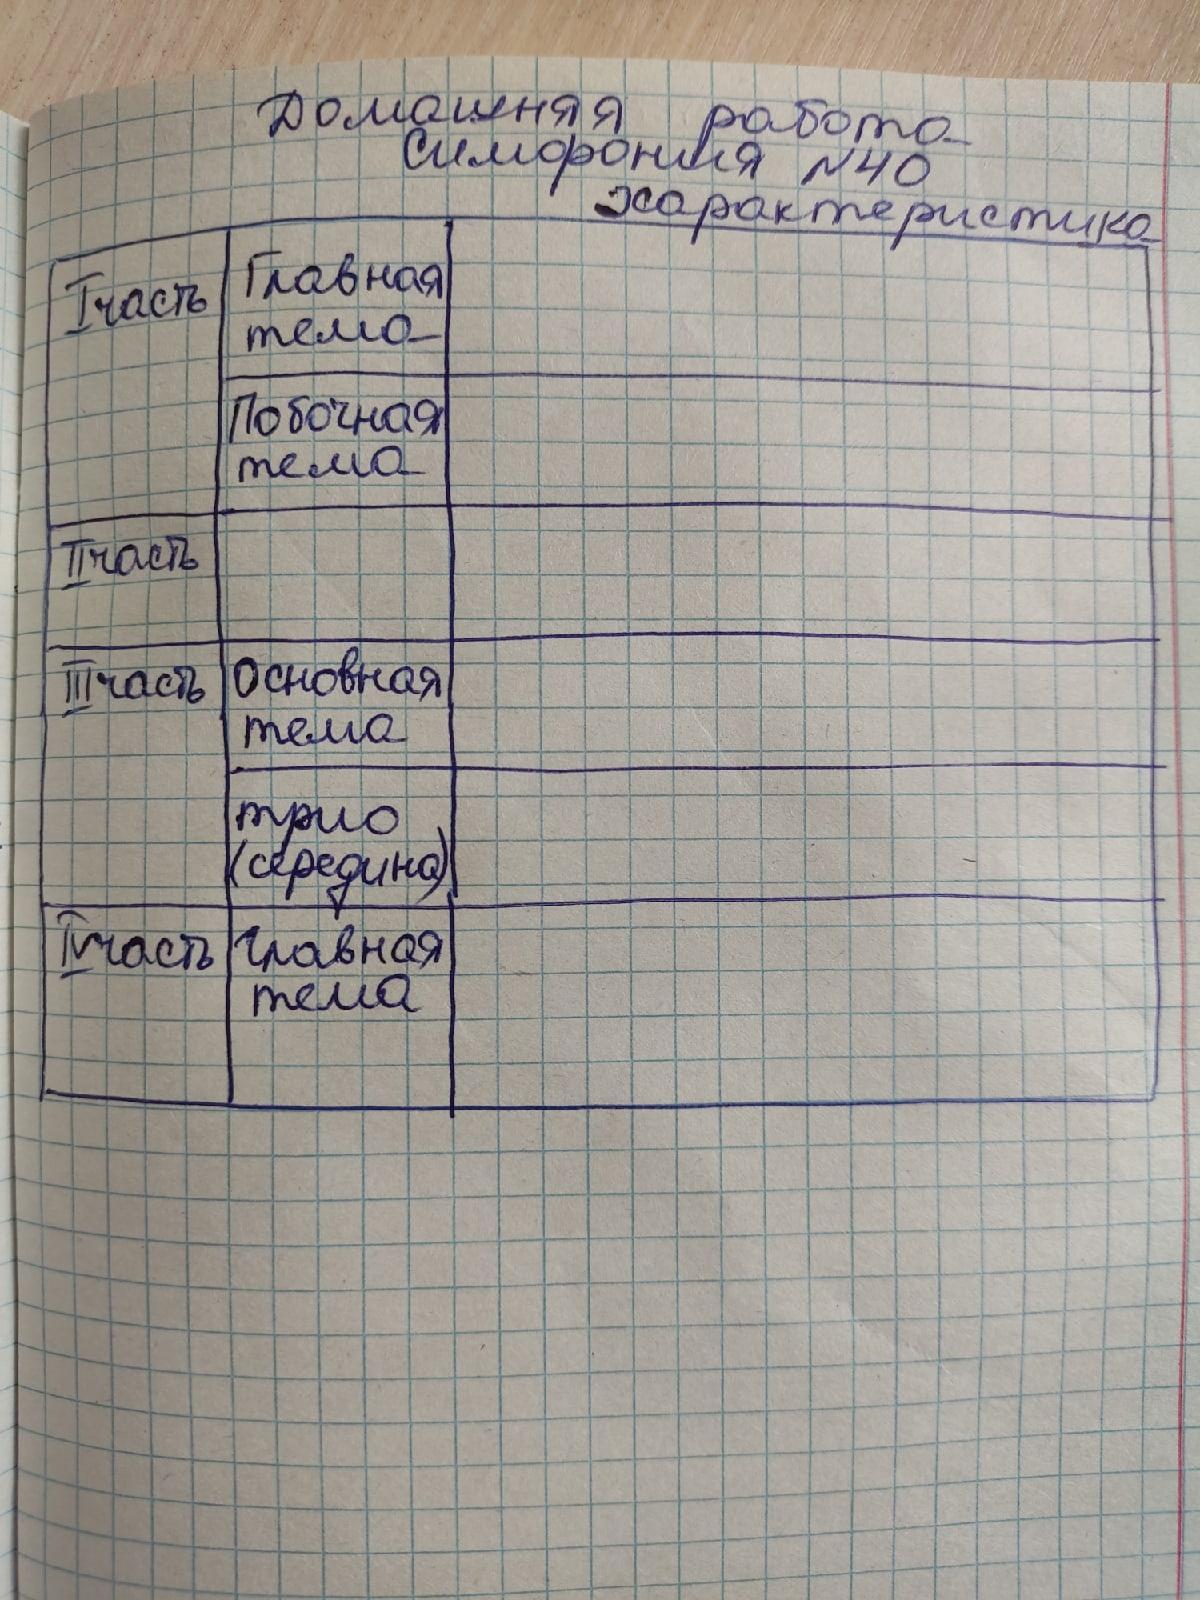 Домашняя работа
Симфония №40
Характеристика
I часть
Главная
тема
Побочная
тема
II часть
III часть
Основная
тема
трио
(середина)
IV часть
Главная
тема